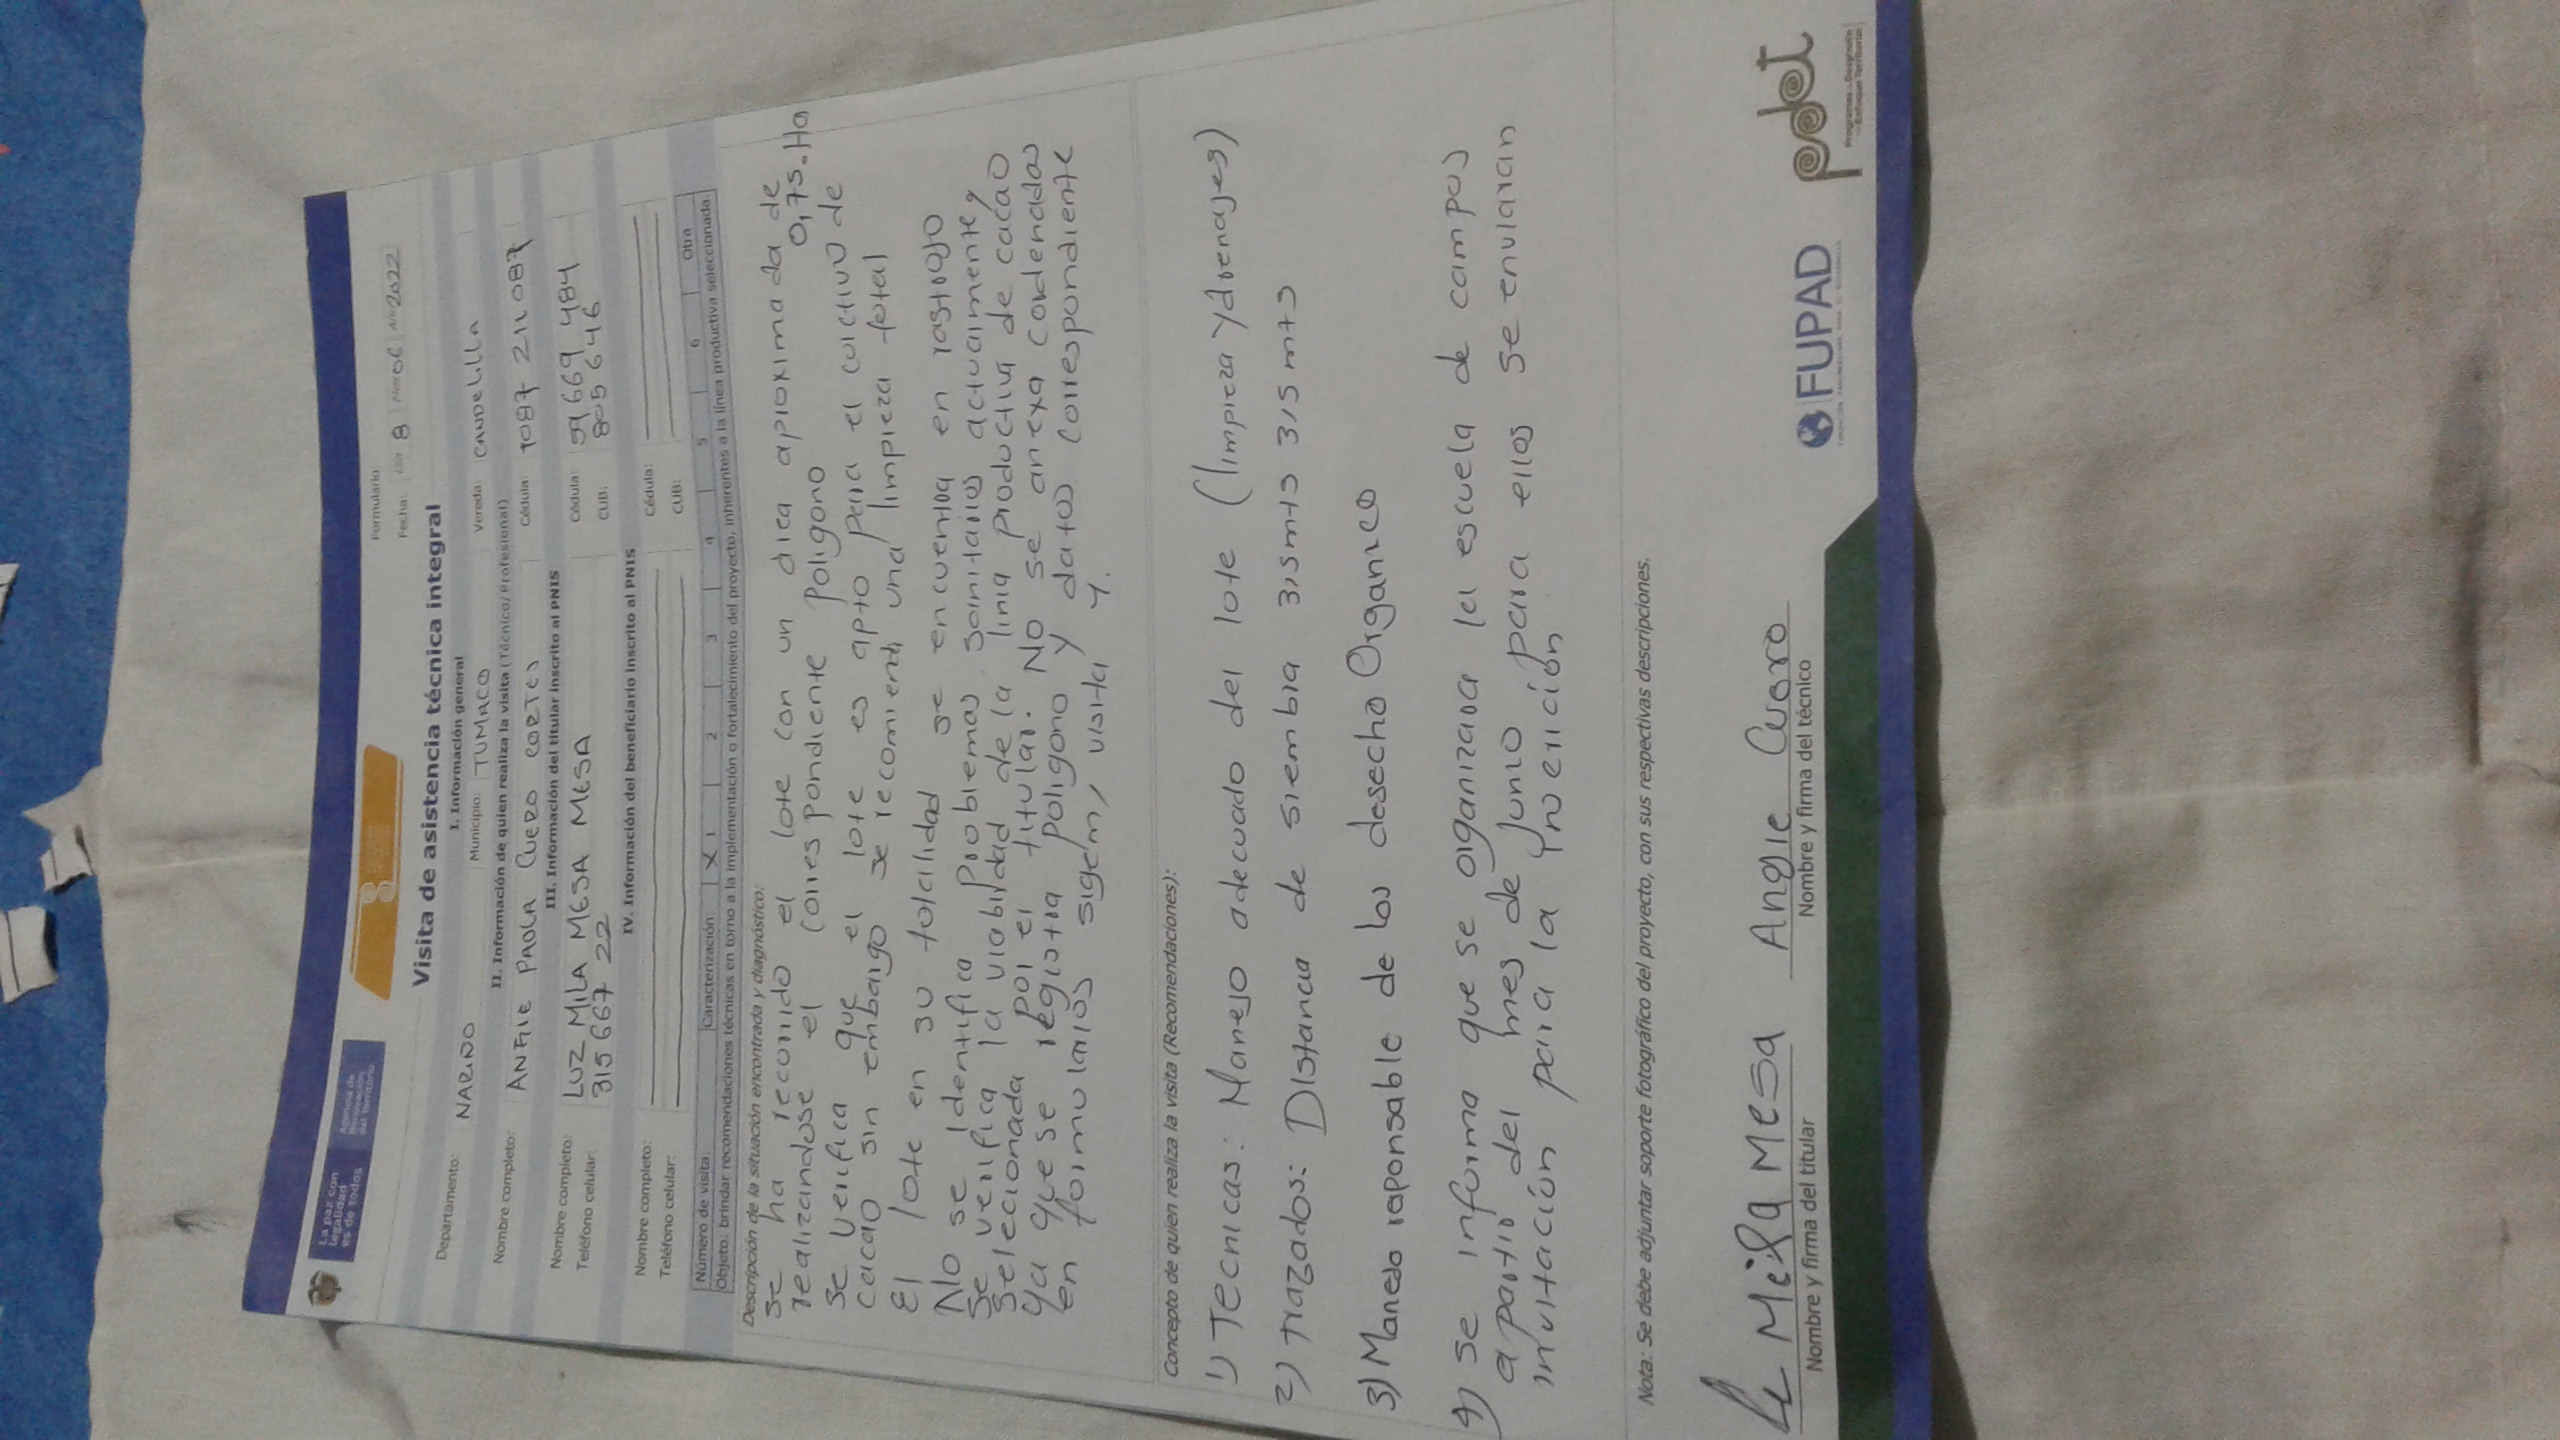 La paz con
legalidad
es de todos
Agencia de
Renovación
del Territorio
Formulario
Fecha: Día 8 Mes 06 Año 2022
Visita de asistencia técnica integral
I. Información general
Departamento: NARIÑO Municipio: TUMACO Vereda: CANDELILLA
II. Información de quien realiza la visita (Técnico/Profesional)
Nombre completo: ANFIE PAOLA CUERO CORTES Cédula: 1087 211 087
III. Información del titular inscrito al PNIS
Nombre completo: LUZ MILA MESA MESA Cédula: 59669 484
Teléfono celular: 315 667 22 CUB: 805646
IV. Información del beneficiario inscrito al PNIS
Nombre completo: Cédula:
Teléfono celular: CUB:
Número de visita: Caracterización: X 1 2 3 4 5 6 Otra
Objeto: brindar recomendaciones técnicas en torno a la implementación o fortalecimiento del proyecto, inherentes a la línea productiva seleccionada.
Descripción de la situación encontrada y diagnóstico:
se ha recorrido el lote con un area aproximada de 0,75-Ha
realizandose el correspondiente Poligono
se verifica que el lote es apto para el cultivo de
cacao sin embargo se recomienda una limpieza total
El lote en su totalidad se encuentra en rastrojo
No se identifica problemas sanitarios actualmente,
se verifica la viabilidad de la linia productiva de cacao
selecionada por el titular. No se anexa cordenadas
ya que se registra poligono y datos correspondiente
en formularios sigem, visita y.
Concepto de quien realiza la visita (Recomendaciones):
1) Tecnicas: Manejo adecuado del lote (limpieza y drenajes)
2) trazados: Distancia de siembra 3,5mts 3,5 mts
3) Manejo reponsable de los desecho Organico
4) se informa que se organizara la escuela de campos
apartir del mes de junio para ellos se enviaran
invitación para la
Nota: Se debe adjuntar soporte fotográfico del proyecto, con sus respectivas descripciones.
L Meila Mesa Angie Cuero
Nombre y firma del titular Nombre y firma del técnico
FUPAD
pdet
Programas de Desarrollo
con Enfoque Territorial